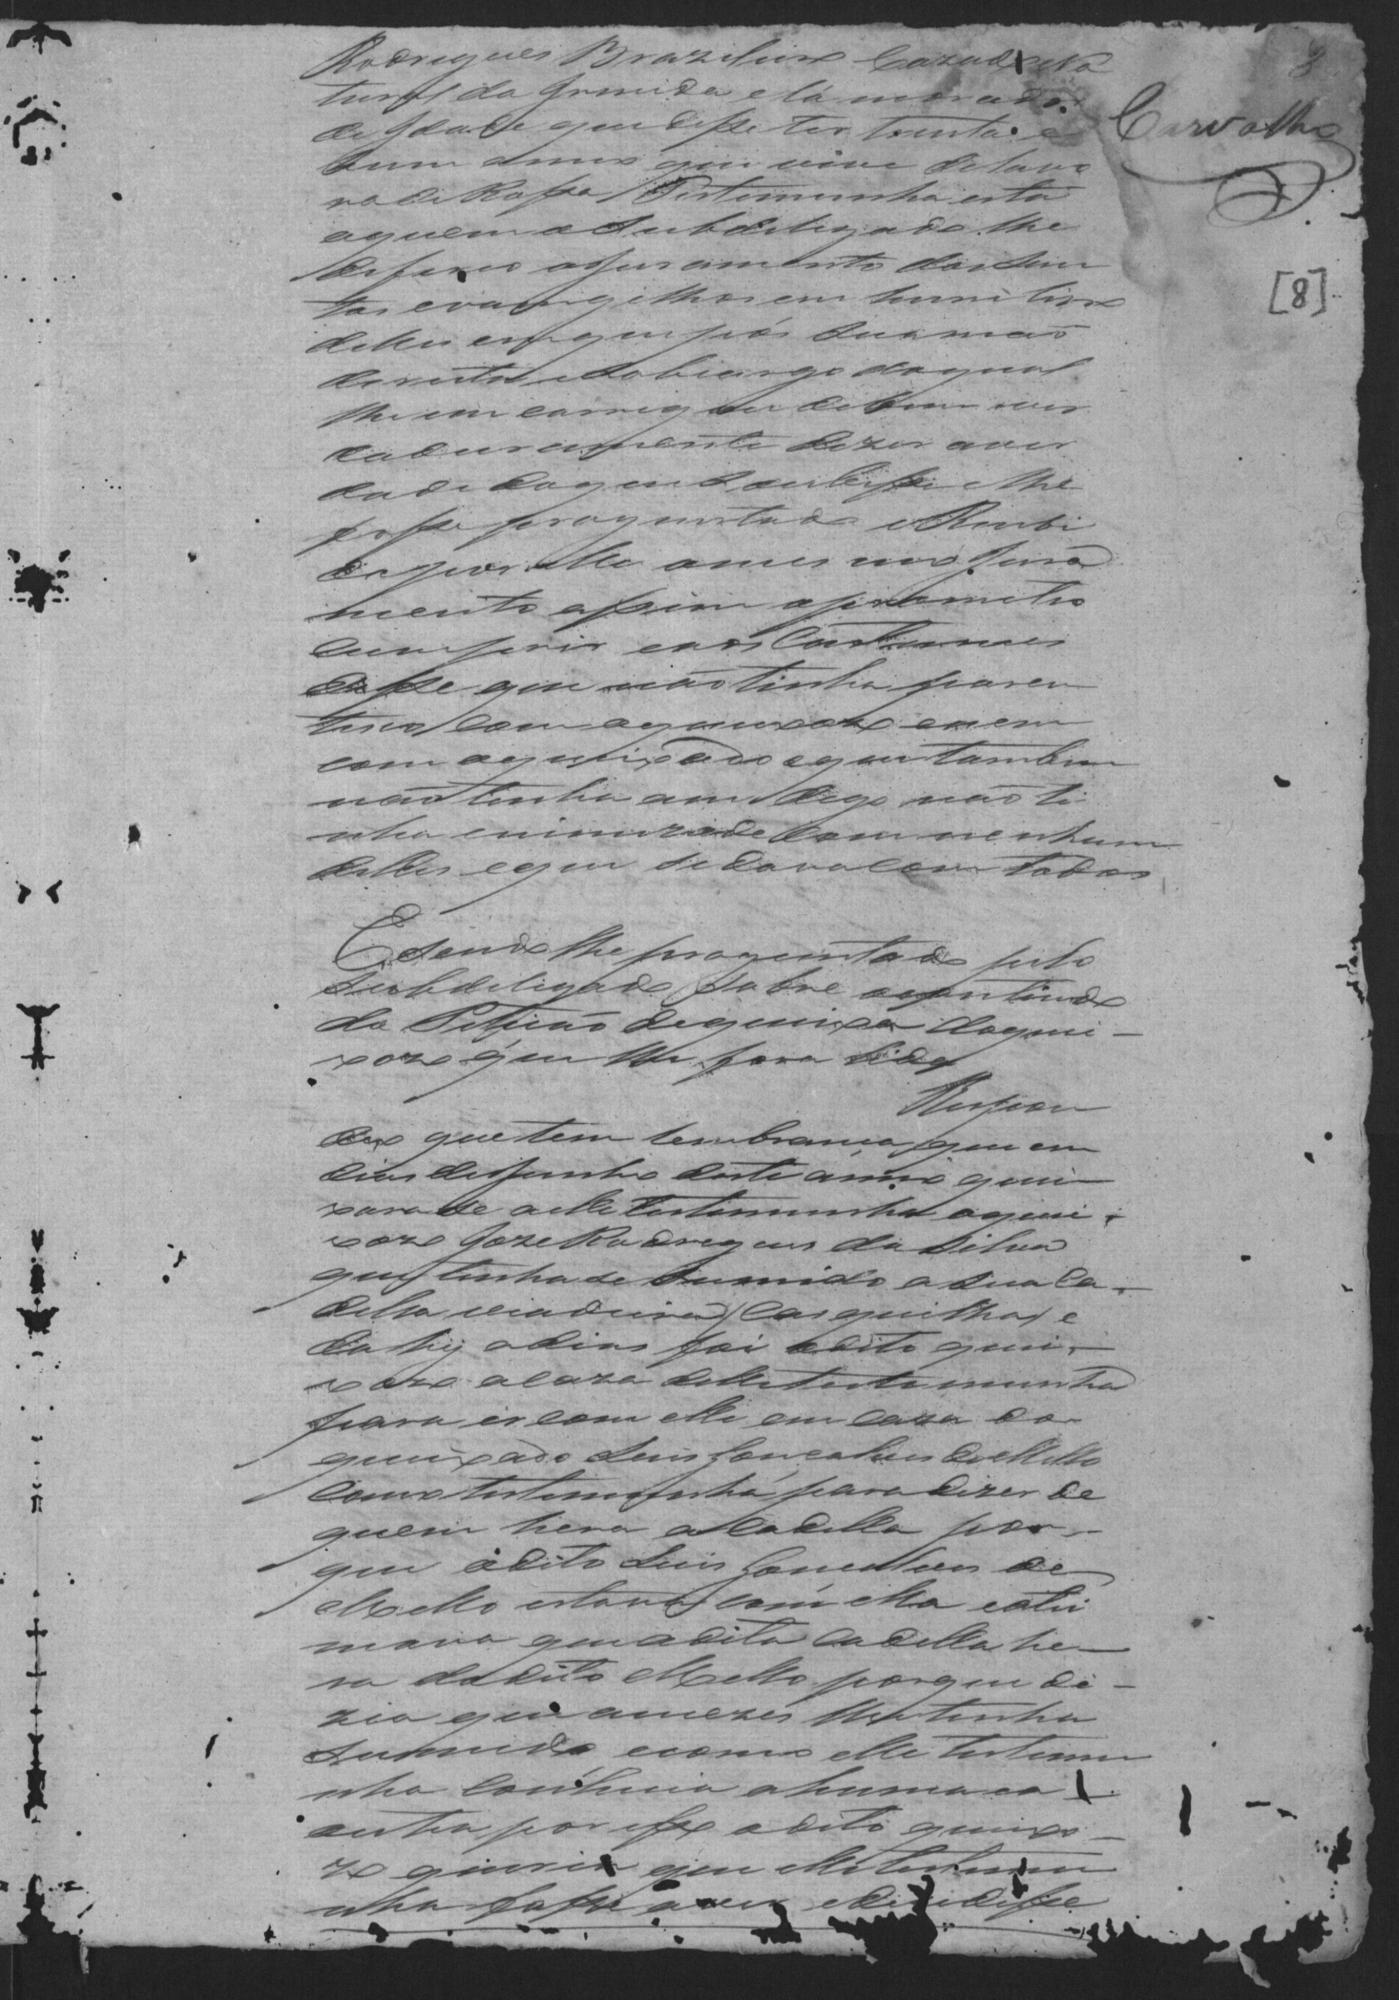 8
Carvalho
[8]
Rodrigues Brazileiro Cazado Na
tural da Ermida e lá morador
de Idade que disse ter trinta e
hum annos que vive de lavo
ra de Rossa Testemunha esta
aquem o Subdelegado lhe
deferio o juramento dos San
tos evangelhos em hum livro
delles em que pôs sua mão
dereita e Sobcargo do qual
lhe em carregou de bem ver
dadeiramente dizer a ver
dade do que Soubesse e lhe
fosse proguntado e Recebi
do por elle o mesmo Jura
mento assim o prometeo
cumprir e aos Costumes
disse que não tinha paren
tesco com o queixozo enem
com o queixado e que tambem
não tinha ami digo não ti
nha enimizade com nenhum
delles e que se dava com todos
E sendo lhe proguntado pelo
Subdelegado Sobre o contiudo
da Petição de queixa do quei-
xozo que lhe fora lida
Respon
deo que tem lembrança que em
dias de Junho deste anno quei
xara se a elle testemunha o quei-
xozo Joze Rodrigues da Silva
que tinha se sumido a sua Ca-
della viadeira Casquilha e
dahy a dias foi o dito quei-
xozo a caza delle testemunha
para ir com elle em caza do
queixado Luis Gonçalves de Mello
como testemunha para dizer de
quem hera a Cadella por-
que o dito Luis Goncalves de
Mello estava com ella e afir
mava que a dita Cadella he-
ra do dito Mello porque di-
zia que a mezes lhe tinha
Sumido e como elle testemu
nha conhecia a huma e a
outra por isso o dito queixo-
zo queria que elle testemu
nha fosse a ver e disse